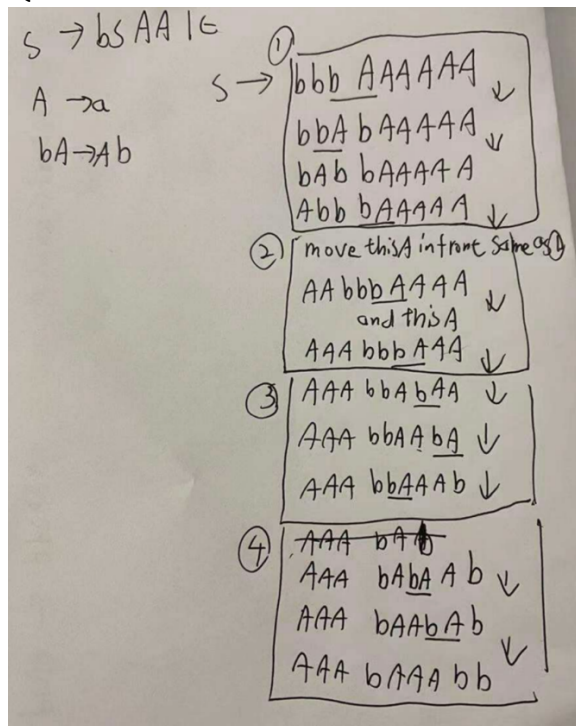 S → bSAA | ε
A → a
bA → Ab
①
S → bbbAAAAAA ↓
bbAbAAAAA ↓
bAbbAAAAA
AbbbAAAAA ↓
② move this A in front same as ①
AAbbbAAAA ↓
and this A
AAAbbbAAA ↓
③ AAA bbAbAA ↓
AAA bbAAbA ↓
AAA bbAAAb ↓
④ AAA bA
AAA bAbAAb ↓
AAA bAAbAb ↓
AAA bAAAbb